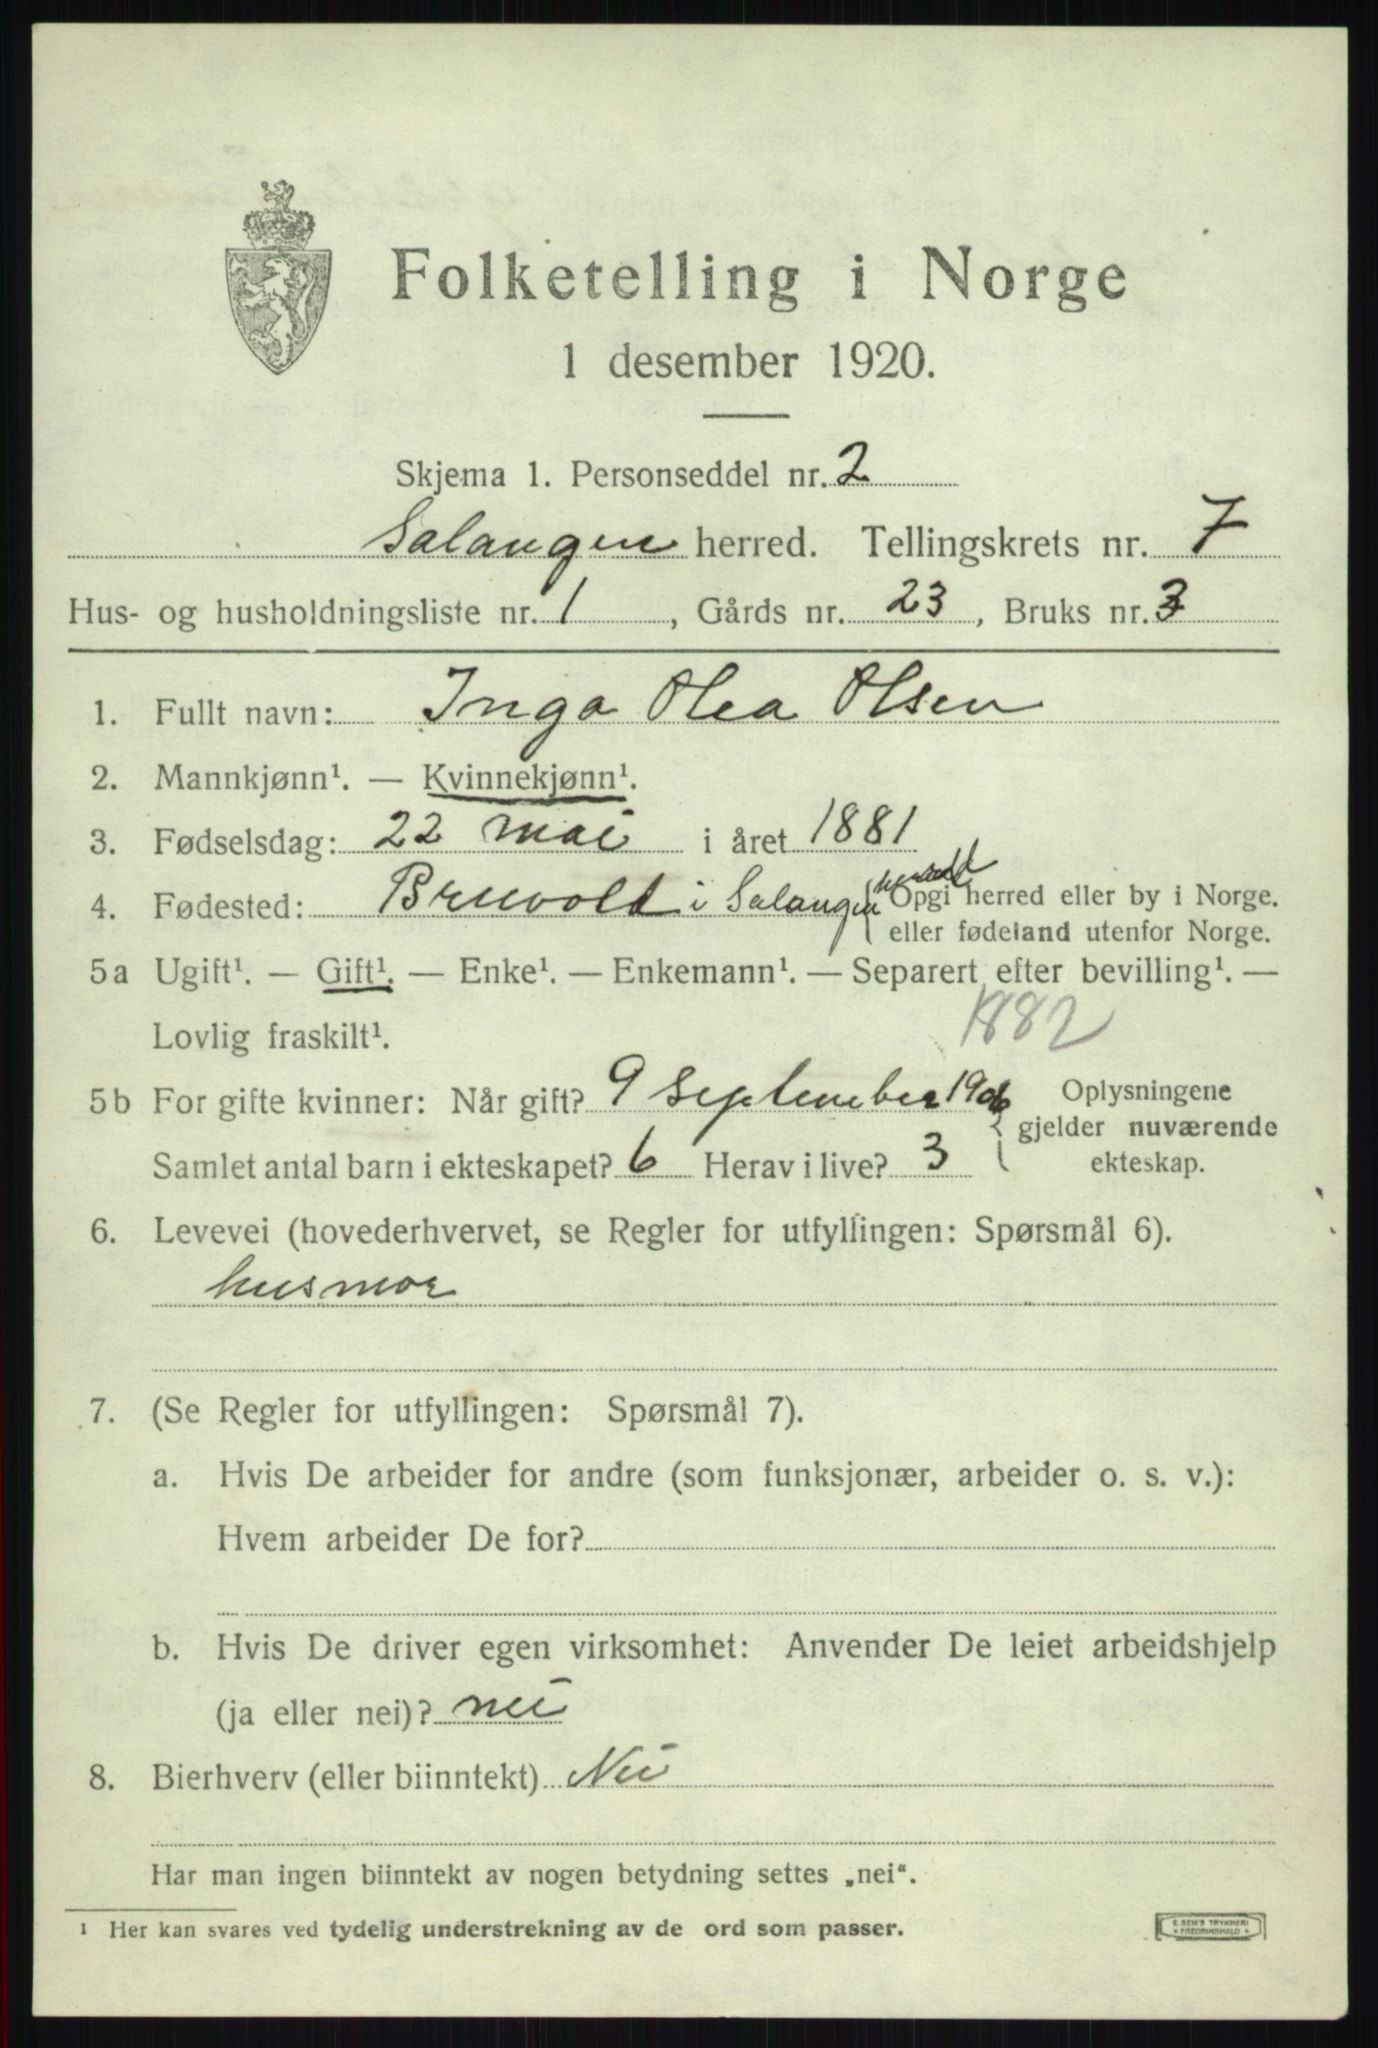 Folketelling i Norge
1 desember 1920.
Skjema 1. Personseddel nr. 2
Salangen herred. Tellingskrets nr. 7
Hus- og husholdningsliste nr. 1, Gårds nr. 23, Bruks nr. 3
1. Fullt navn: Inga Olea Olsen
2. Mannkjønn¹. — Kvinnekjønn¹.
3. Fødselsdag: 22 mai i året 1881
4. Fødested: Bruvold i Salangen herred Opgi herred eller by i Norge.
eller fødeland utenfor Norge.
5a Ugift¹. — Gift¹. — Enke¹. — Enkemann¹. — Separert efter bevilling¹. —
Lovlig fraskilt¹. 1882
5b For gifte kvinner: Når gift? 9 September 1906 Oplysningene
gjelder nuværende
Samlet antal barn i ekteskapet? 6 Herav i live? 3 ekteskap.
6. Levevei (hovederhvervet, se Regler for utfyllingen: Spørsmål 6).
husmor
7. (Se Regler for utfyllingen: Spørsmål 7).
a. Hvis De arbeider for andre (som funksjonær, arbeider o. s. v.):
Hvem arbeider De for?
b. Hvis De driver egen virksomhet: Anvender De leiet arbeidshjelp
(ja eller nei)? nei
8. Bierhverv (eller biinntekt) Nei
Har man ingen biinntekt av nogen betydning settes „nei“.
¹ Her kan svares ved tydelig understrekning av de ord som passer.
E. SEM'S TRYKKERI
FREDRIKSHALD